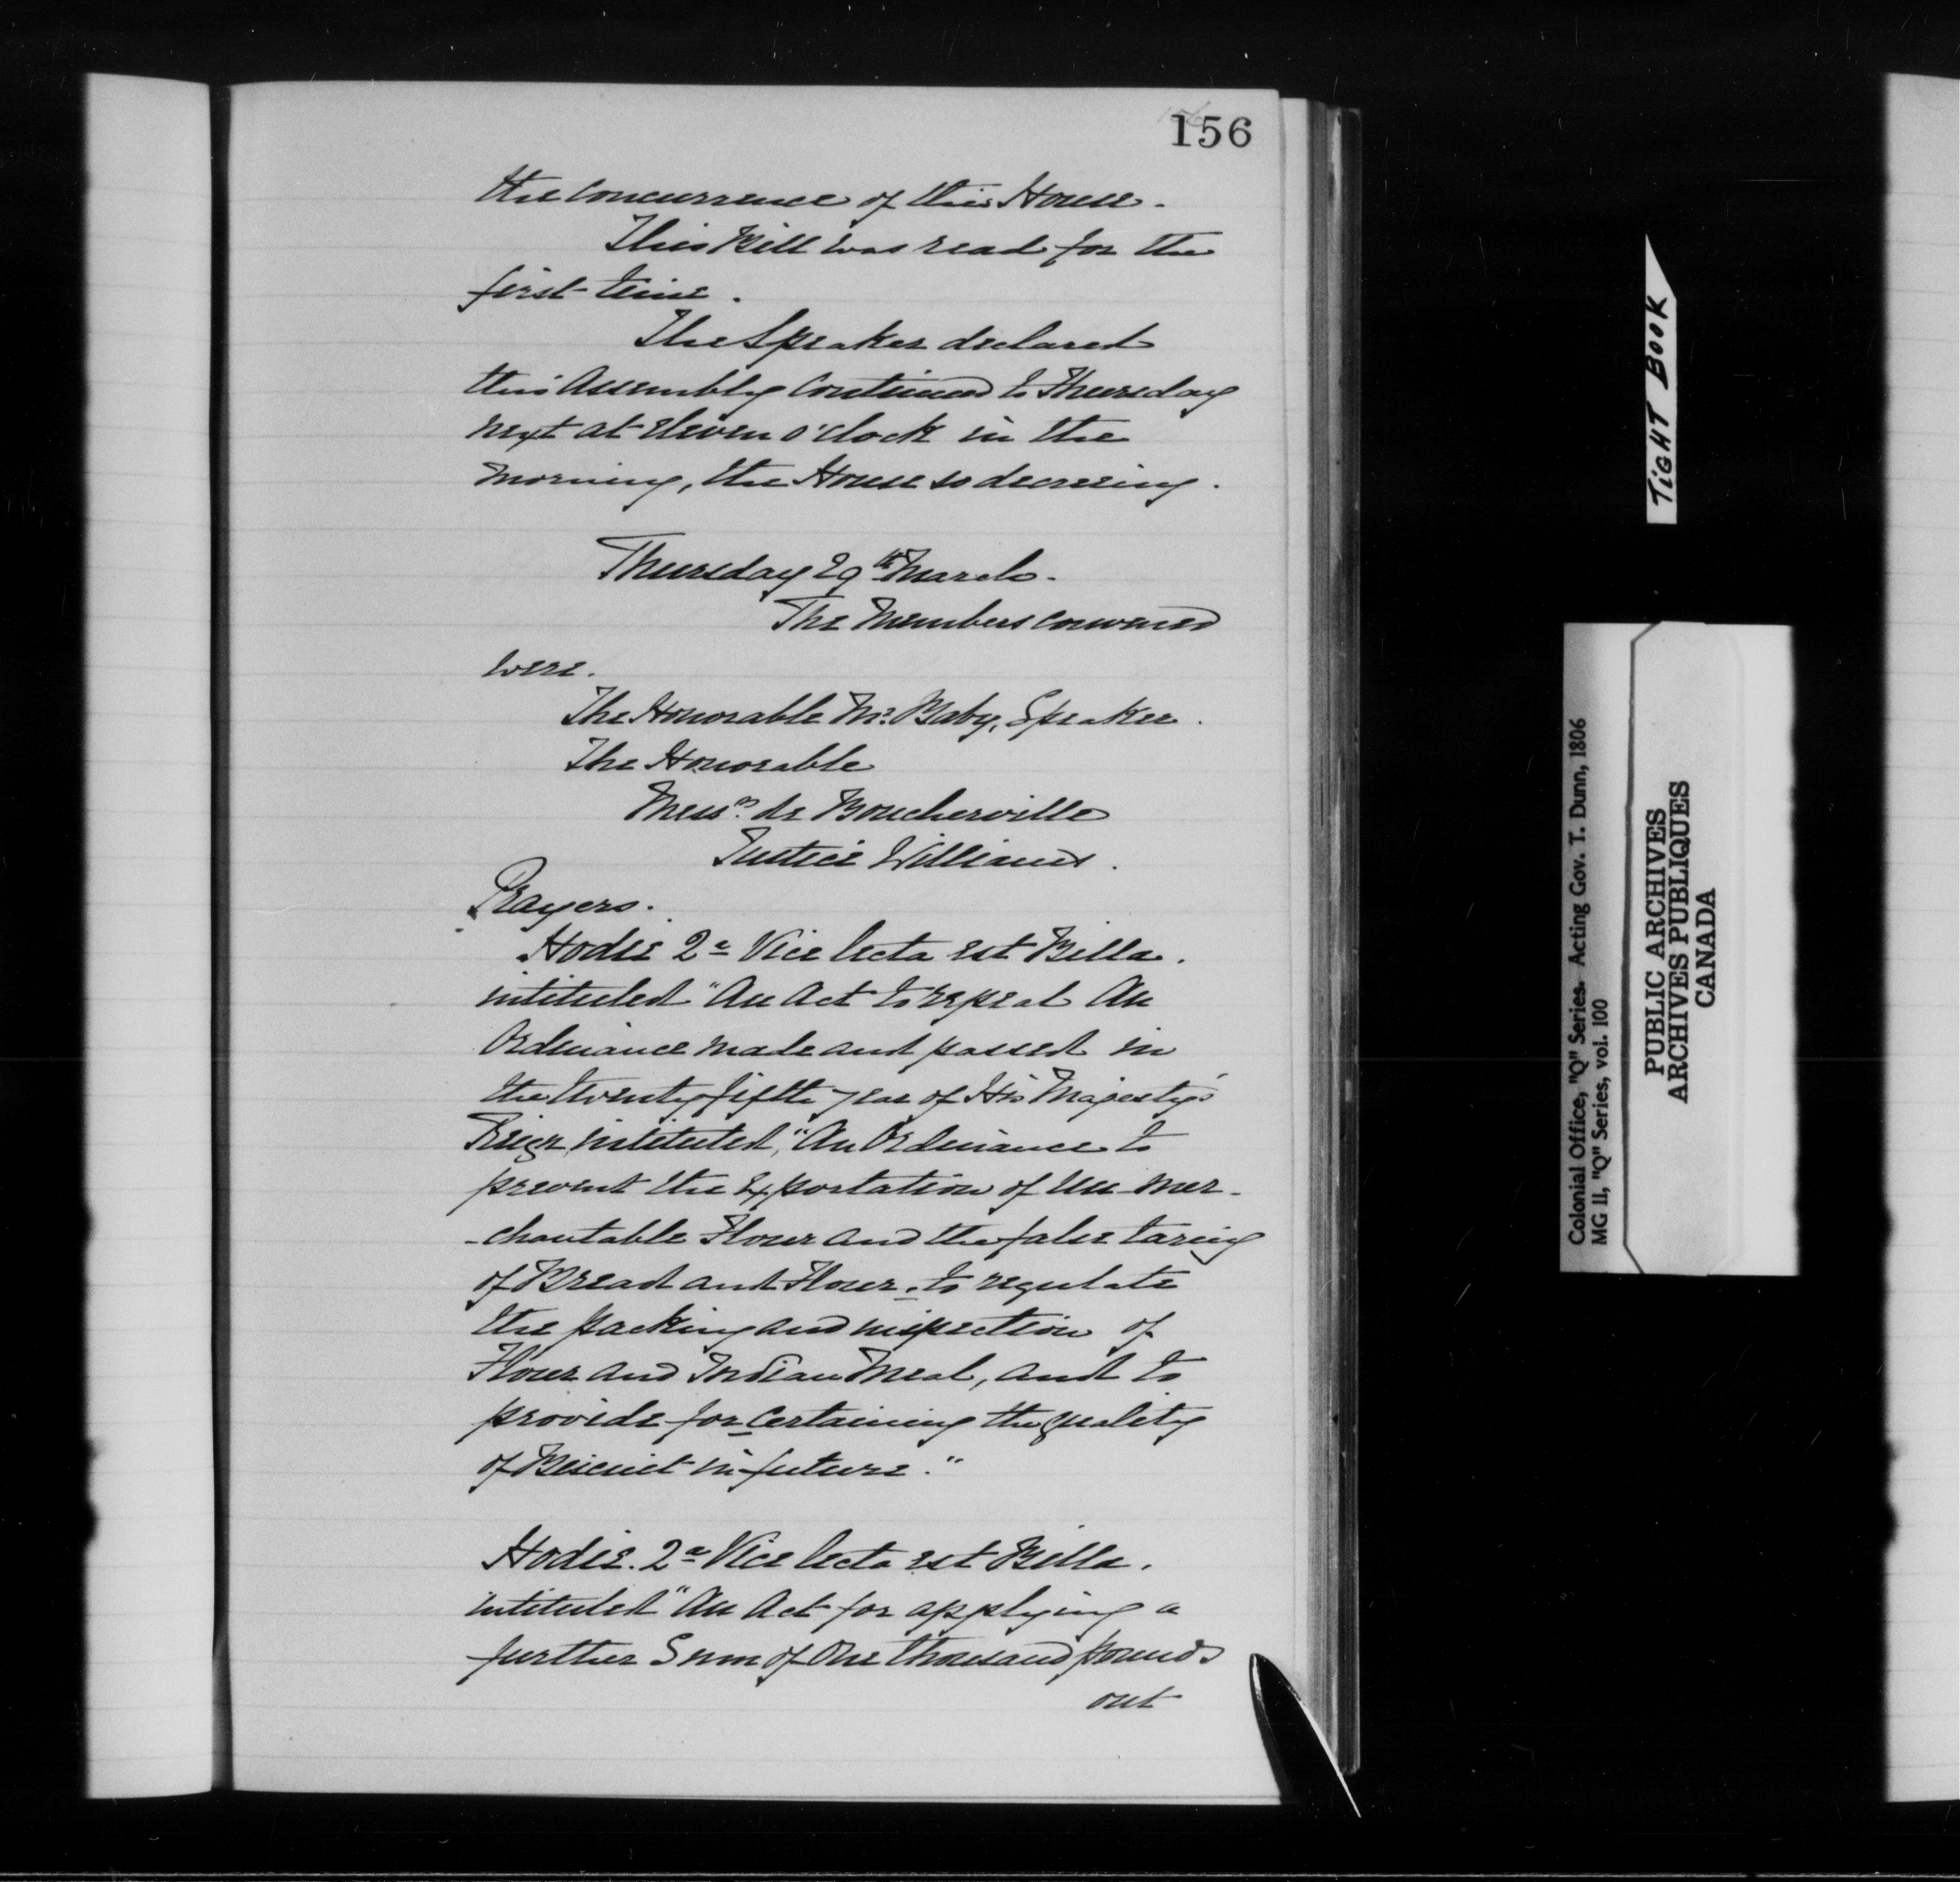 156
the Concurrence of this House.
This Bill was read for the
first time.
The Speaker declared
this Assembly Continued to Thursday
next at Eleven o'clock in the
morning, the House so decreeing.
Thursday 29th March.
The Members convened
were.
The Honorable Mr. Baby, Speaker.
The Honorable
Messrs. de Boucherville
Justice Williams.
Prayers.
Hodie 2a Vice lecta est Billa.
intituled "An Act to repeal An
Ordinance made and passed in
the twenty fifth year of His Majesty's
Reign, intituled, "An Ordinance to
prevent the Exportation of un-mer-
-chantable Flour and the false taring
of Bread and Flour, to regulate
the packing and inspection of
Flour and Indian Meal, and to
provide for Certaining the quality
of Biscuit in future."
Hodie. 2a Vice lecta est Billa.
intituled "An Act for applying a
further Sum of One thousand pounds
out
TIGHT BOOK
Colonial Office, "Q" Series. Acting Gov. T. Dunn, 1806
MG 11, "Q" Series, vol. 100
PUBLIC ARCHIVES
ARCHIVES PUBLIQUES
CANADA